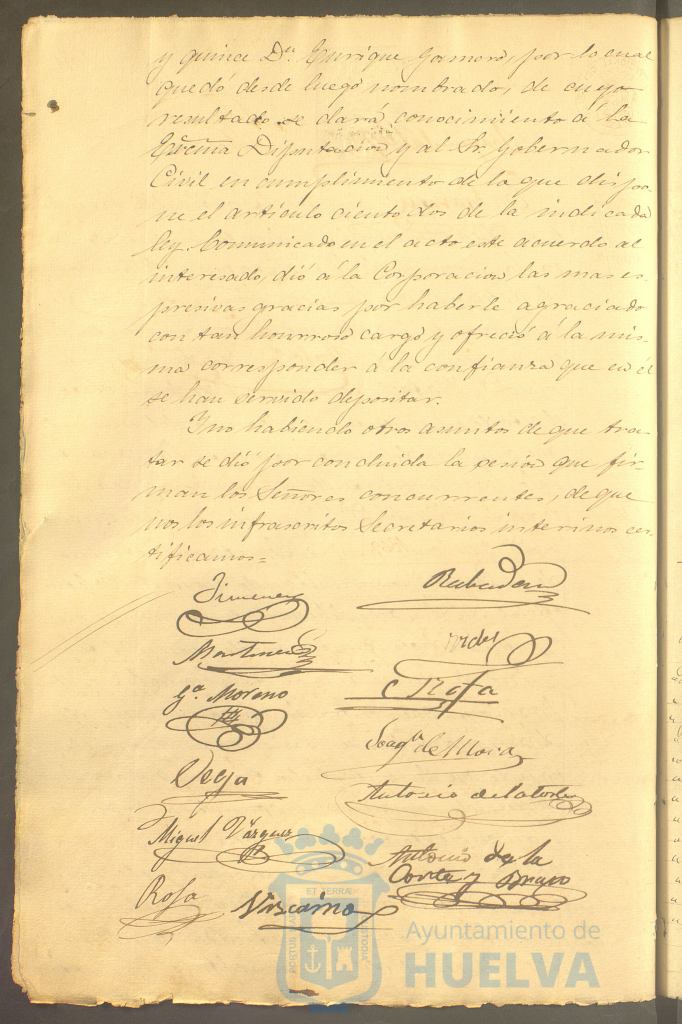 y quince Dn. Enrique Gamero, por lo cual
quedó desde luego nombrado, de cuyo
resultado se dará conocimiento á la
Excma Diputacion y al Sr. Gobernador
Civil en cumplimiento de lo que dispo-
ne el artículo ciento dos de la indicada
ley. Comunicado en el acto este acuerdo al
interesado, dió á la Corporacion las mas es-
presivas gracias por haberle agraciado
con tan honroso cargo y ofreció á la mis-
ma corresponder á la confianza que en él
se han servido depositar.
Y no habiendo otros asuntos de que tra-
tar se dió por concluida la sesion que fir-
man los Señores concurrentes, de que
nos los infrascritos Secretarios interinos cer-
tificamos=
Jimenez
Rabadan
Martinez
Ga. Moreno
Joaqn de Mora
Vega
Antonio de la Torre
Miguel Vázquez
Antonio de la
Corte y Bravo
Rosa
Vizcaino
ET TERRÆ
CUSTODIA
PORTUS
Ayuntamiento de
HUELVA